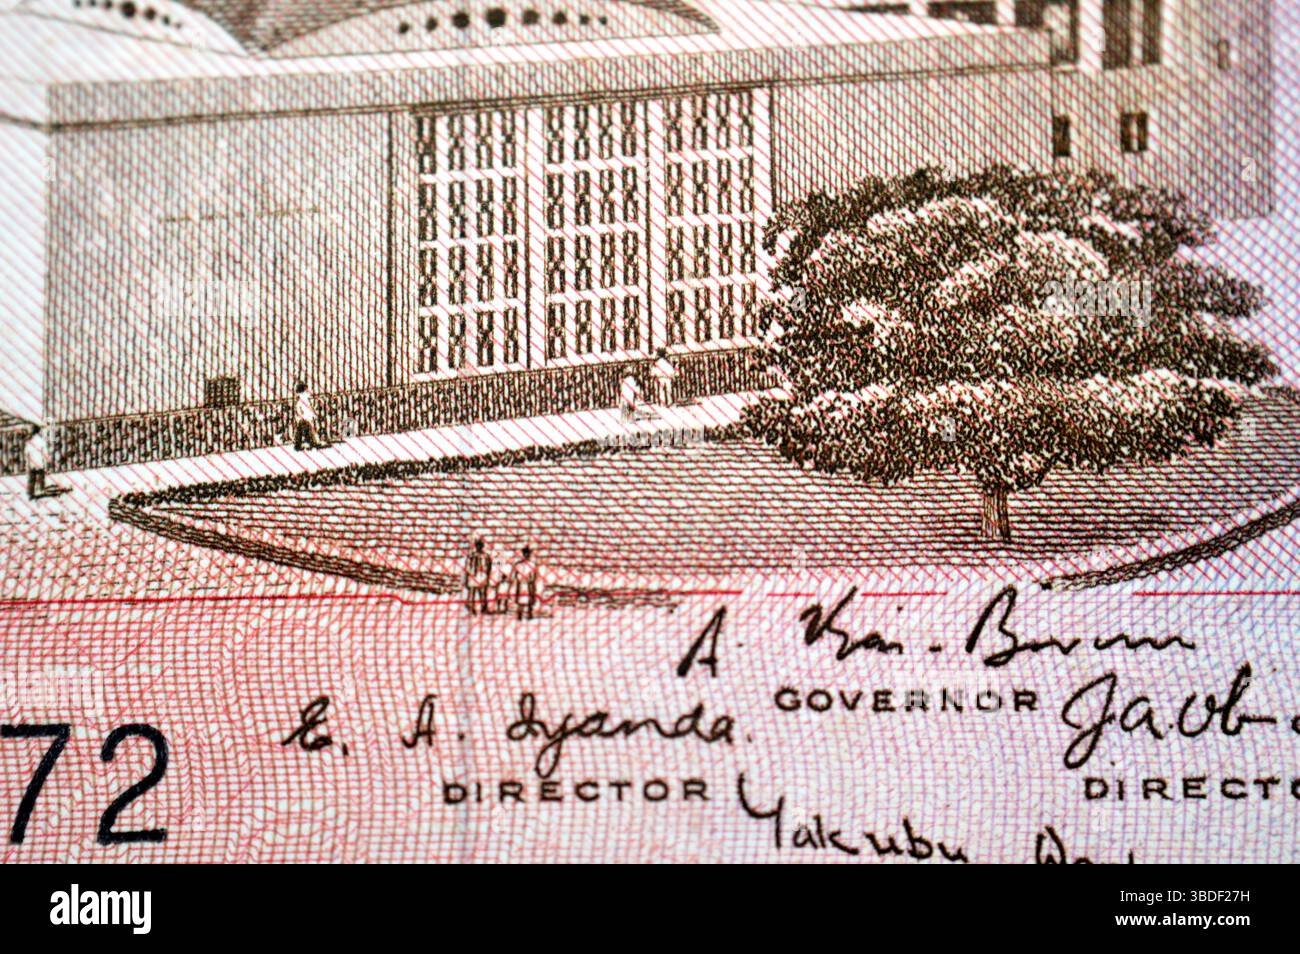 A. Kei-Burum
GOVERNOR
E. A. Iyanda.
DIRECTOR
J.A. Ob
DIRECTO
Yakubu
72
alamy
Image ID: 3BDF27H
www.alamy.com